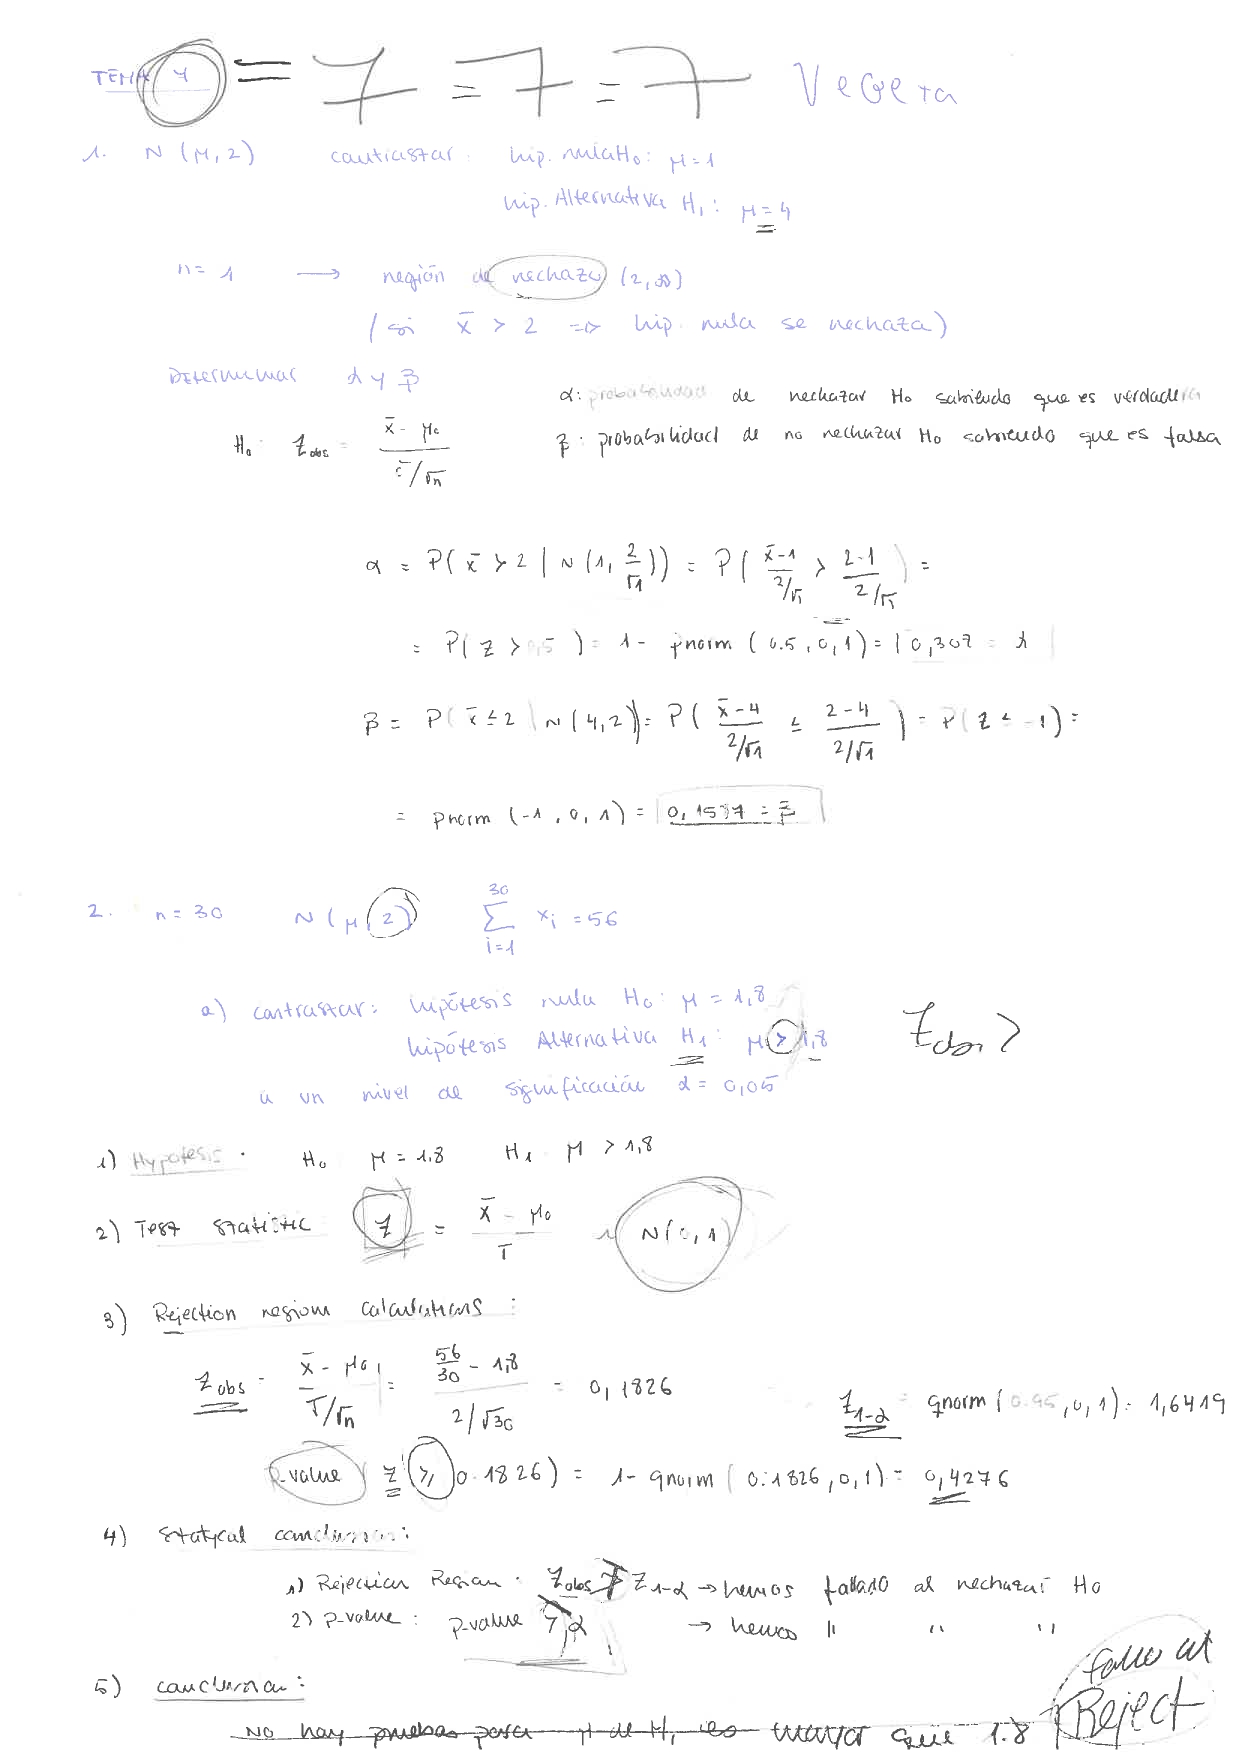 TEMA 4 = 7 = 7 = 7 Vegeta
1. N(μ,2) contrastar: hip. nula H₀: μ=1
hip. Alternativa H₁: μ=4
n=1 → región de rechazo (2,∞)
(si x̄ > 2 => hip. nula se rechaza)
Determinar α y β
α: probabilidad de rechazar H₀ sabiendo que es verdadera
H₀: Z_obs = (x̄ - μ₀)/(σ/√n) β: probabilidad de no rechazar H₀ sabiendo que es falsa
α = P(x̄ > 2 | N(1, 2/√1)) = P((x̄-1)/(2/√1) > (2-1)/(2/√1)) =
= P(Z > 0,5) = 1 - pnorm(0.5,0,1) = 0,307 = α
β = P(x̄ ≤ 2 | N(4,2)) = P((x̄-4)/(2/√1) ≤ (2-4)/(2/√1)) = P(Z ≤ -1) =
= pnorm(-1,0,1) = 0,1587 = β
2. n=30 N(μ,2) ∑_{i=1}^{30} xᵢ = 56
a) contrastar: hipótesis nula H₀: μ = 1,8
hipótesis Alternativa H₁: μ > 1,8 Z_obs >
a un nivel de significación α = 0,05
1) Hypotesis. H₀ μ = 1.8 H₁ μ > 1,8
2) Test statistic Z = (x̄ - μ₀)/σ ~ N(0,1)
3) Rejection region calculations:
Z_obs = (x̄ - μ₀)/(σ/√n) = (56/30 - 1,8)/(2/√30) = 0,1826 Z_{1-α} = qnorm(0.95,0,1) = 1,6419
P-value (Z ≥ 0.1826) = 1 - qnorm(0.1826,0,1) = 0,4276
4) Statycal conclusion:
1) Rejection Region: Z_obs ≯ Z_{1-α} → hemos fallado al rechazar H₀
2) p-value: p-value > α → hemos " " "
fallo al
5) conclusion: Reject
No hay pruebas para μ de H₁ es mayor que 1.8